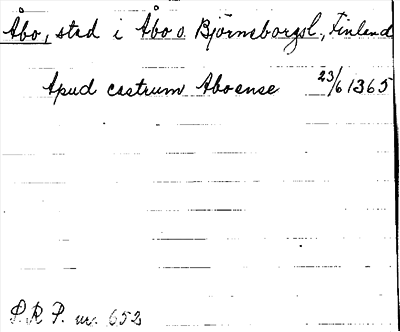 Åbo, stad i Åbo o. Björneborgsl., Finland
Apud castrum Aboense 23/6 1365
S.R.P. nr. 652